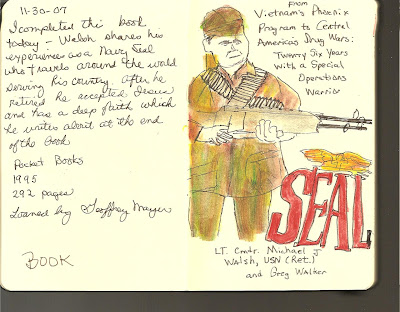 11-30-07
I completed this book
today - Welsh shares his
experiences as a Navy Seal
who travels around the world
serving his country. After he
retired he accepted Jesus
and has a deep faith which
he writes about at the end
of the book
Pocket Books
1995
292 pages
Loaned by Geoffrey Mayer
BOOK
From
Vietnam's Phoenix
Program to Central
America's Drug Wars:
Twenty Six Years
With a Special
Operations
Warrior
SEAL
LT. Cmdr. Michael J
Walsh, USN (Ret.)
and Greg Walker